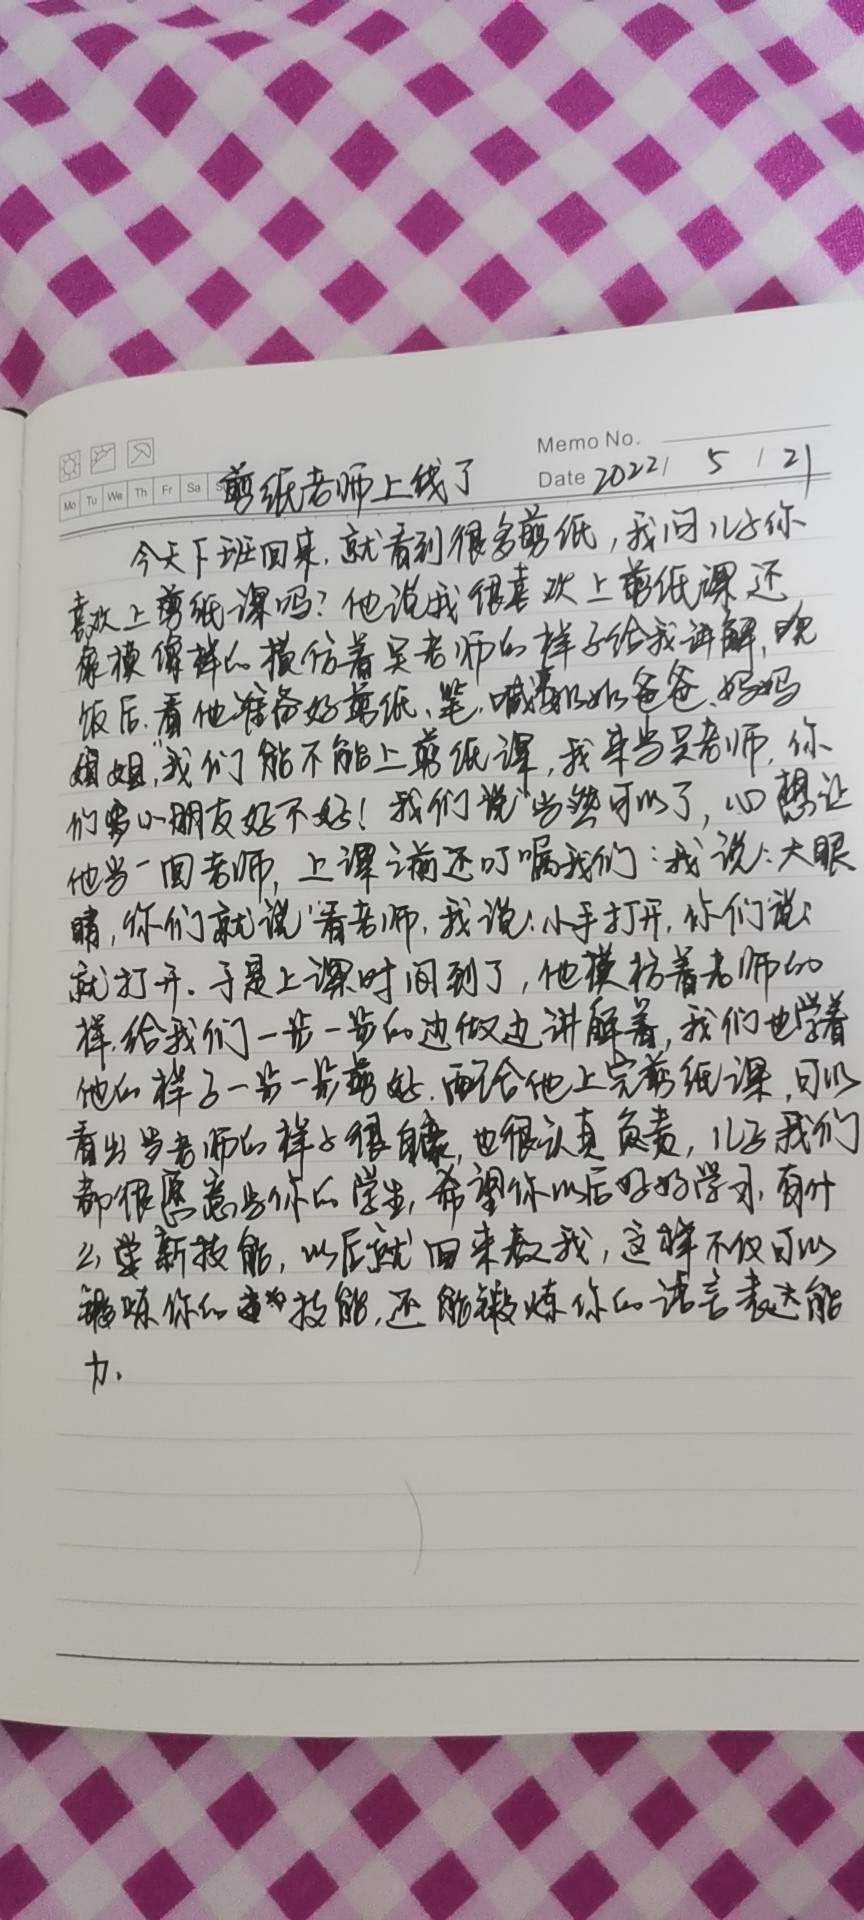 Memo No.
Mo Tu We Th Fr Sa
Date 2022 / 5 / 21
剪纸老师上线了
今天下班回来,就看到很多剪纸,我问儿子你
喜欢上剪纸课吗?他说我很喜欢上剪纸课还
像模像样的模仿着吴老师的样子给我讲解,晚
饭后,看他准备好剪纸、笔,喊奶奶爸爸、妈妈
姐姐,"我们能不能上剪纸课,我来当吴老师,你
们当小朋友好不好!我们说"当然可以了,心想让
他当一回老师,上课之前还叮嘱我们:我说:大眼
睛,你们就说"看老师,我说:小手打开,你们说:
就打开。于是上课时间到了,他模仿着老师的
样,给我们一步一步的边做边讲解着,我们也学着
他的样子一步一步剪好,配合他上完剪纸课,可以
看出当老师的样子很自豪,也很认真负责,儿子我们
都很愿意当你的学生,希望你以后好好学习,有什
么学新技能,以后就回来教我,这样不仅可以
锻炼你的技能,还能锻炼你的语言表达能
力。